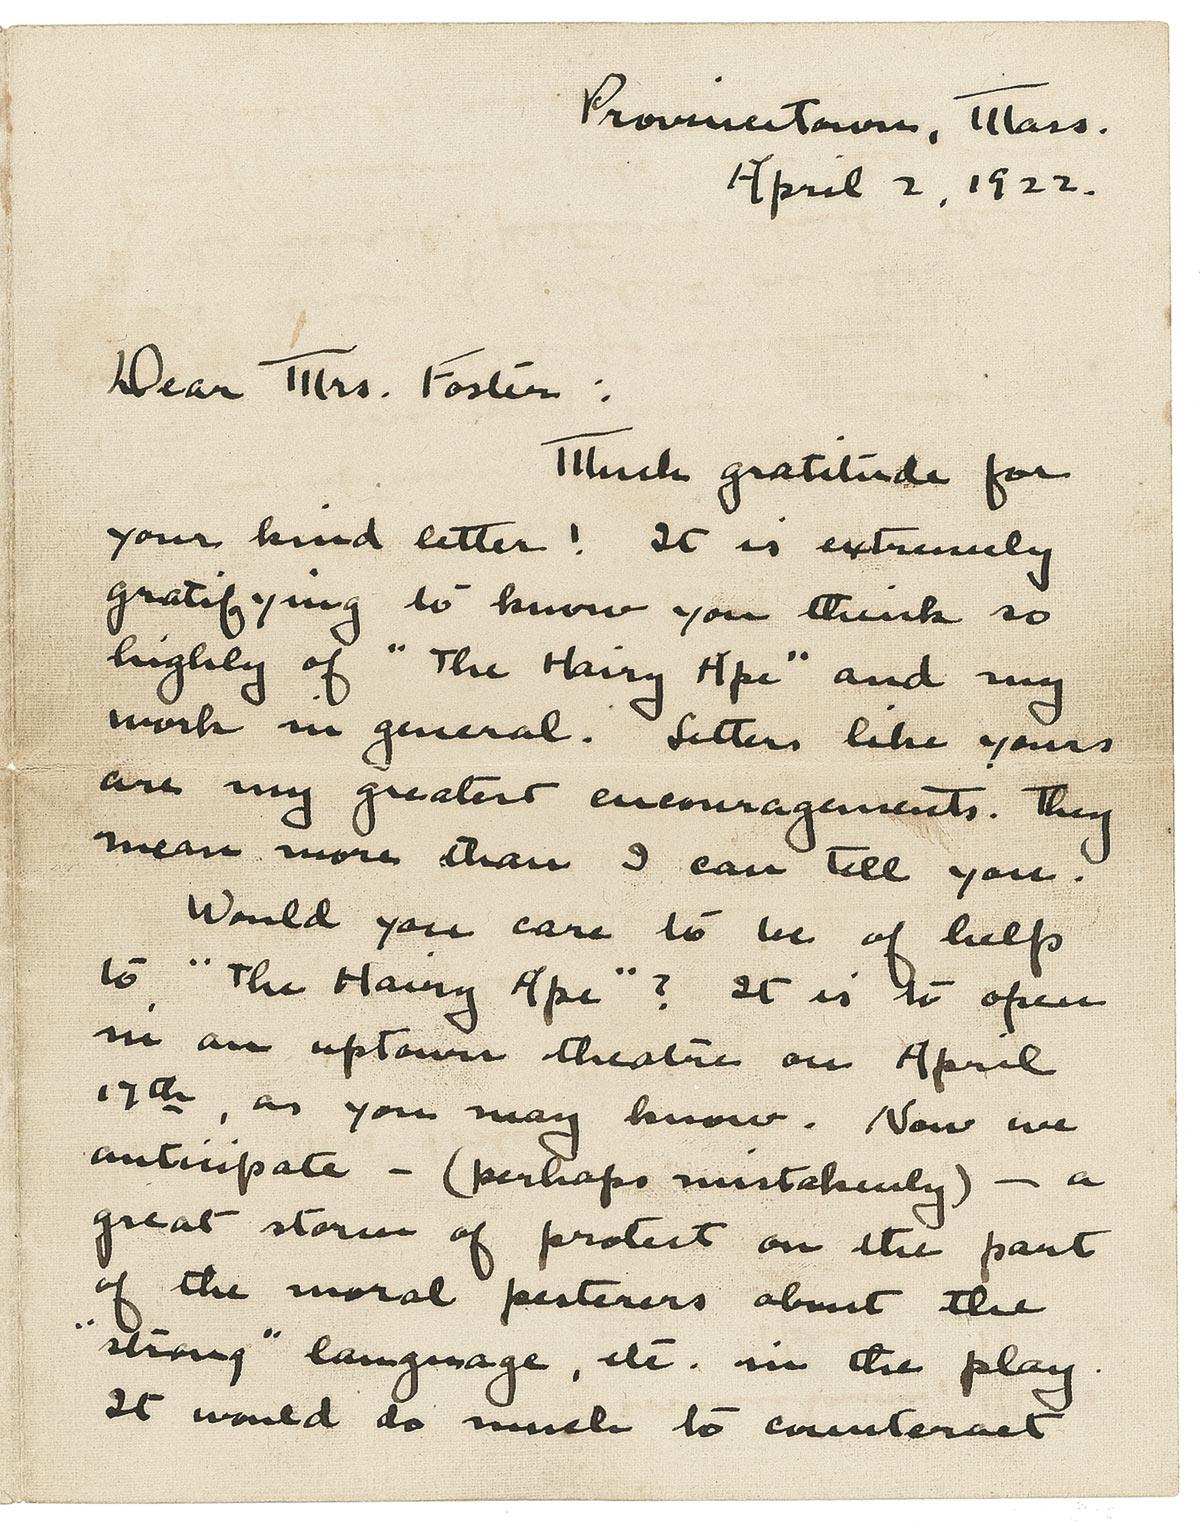 Provincetown, Mass.
April 2, 1922.
Dear Mrs. Foster:
Much gratitude for
your kind letter! It is extremely
gratifying to know you think so
highly of "The Hairy Ape" and my
work in general. Letters like yours
are my greatest encouragements. They
mean more than I can tell you.
Would you care to be of help
to "The Hairy Ape"? It is to open
in an uptown theatre on April
17th, as you may know. Now we
anticipate - (perhaps mistakenly) - a
great storm of protest on the part
of the moral pesterers about the
"strong" language, etc. in the play.
It would do much to counteract